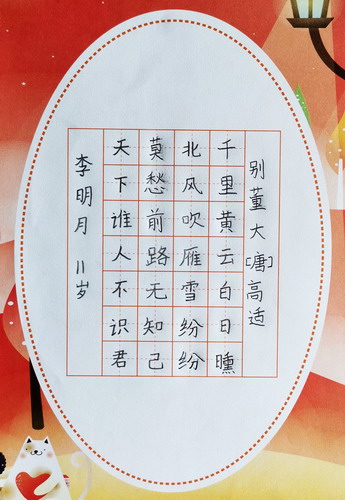 别董大[唐]高适
千里黄云白日曛
北风吹雁雪纷纷
莫愁前路无知己
天下谁人不识君
李明月 11岁